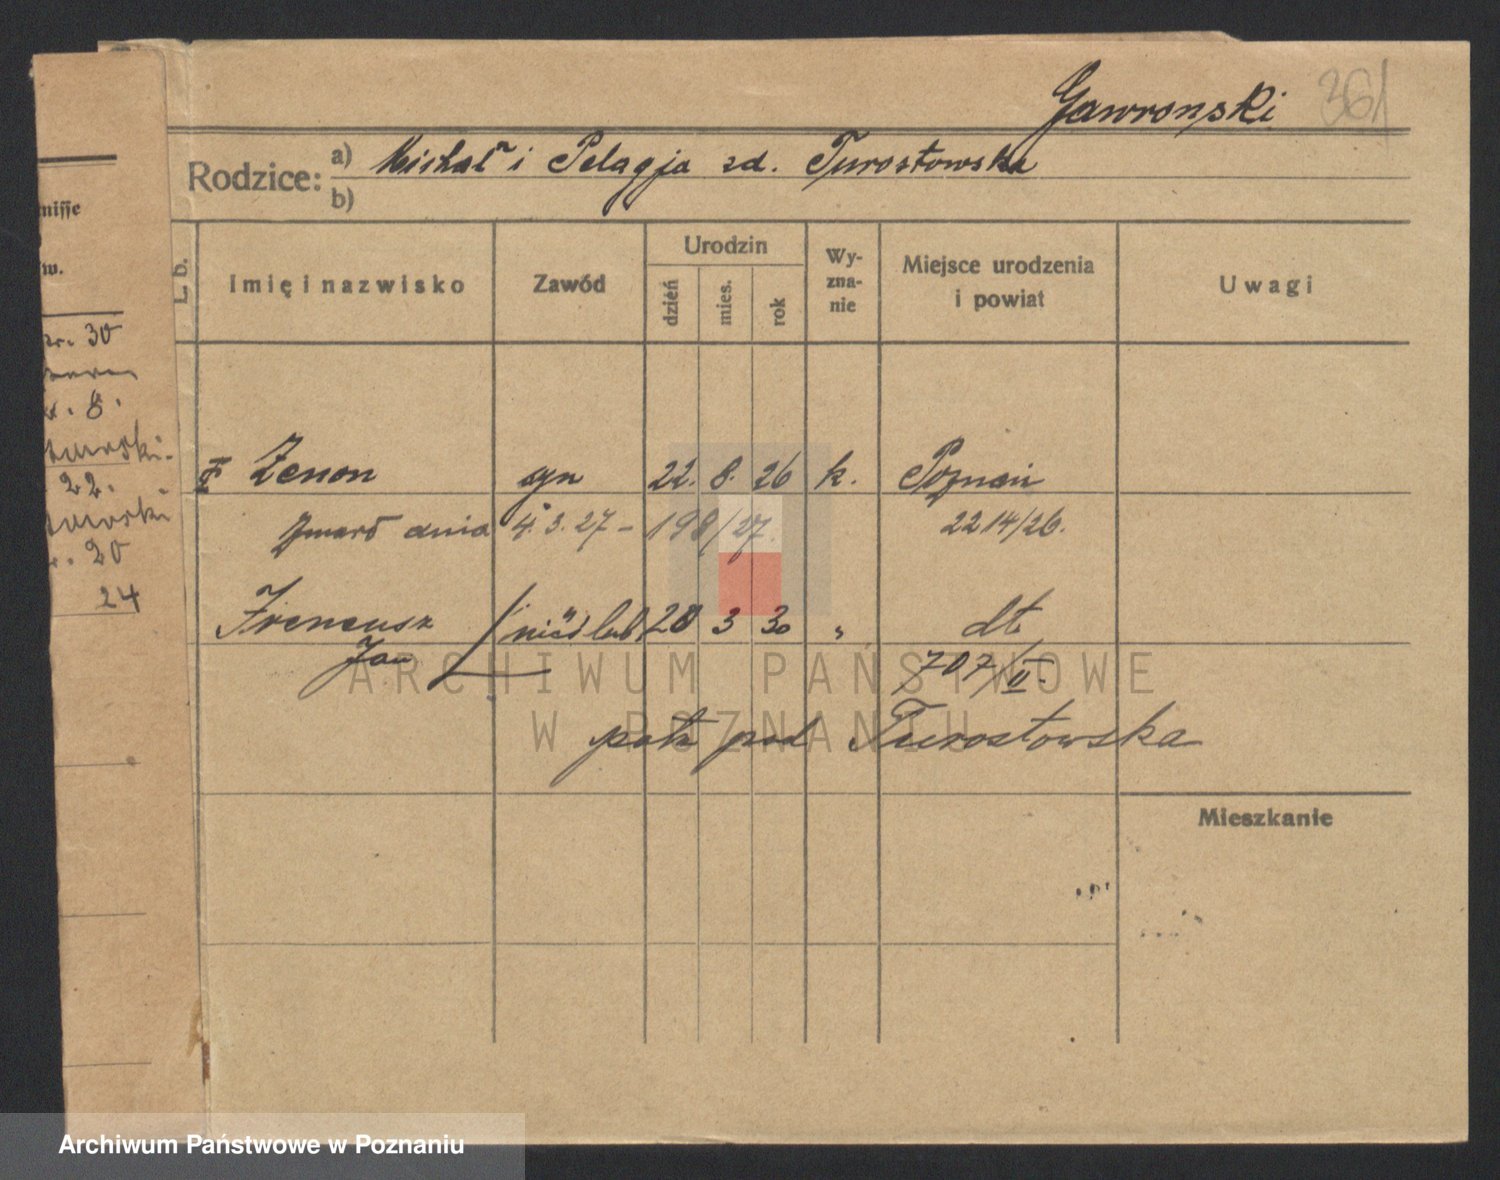 Gawronski 361
Rodzice: a) Michał i Pelagja zd. Turostowska
b)
L. b.
Imię i nazwisko
Zawód
Urodzin
dzień
mies.
rok
Wy-
zna-
nie
Miejsce urodzenia
i powiat
Uwagi
Zenon syn 22. 8. 26 k. Poznań
Zmarł dnia 4. 3. 27 - 198/27. 2214/26.
Ireneusz nieślub. 28 3 30 " dt.
Jan 707/II
patz pod Turostowska
Mieszkanie
nisse
w.
r. 30
. 8.
22.
. 20
24
ARCHIWUM PAŃSTWOWE
W POZNANIU
Archiwum Państwowe w Poznaniu